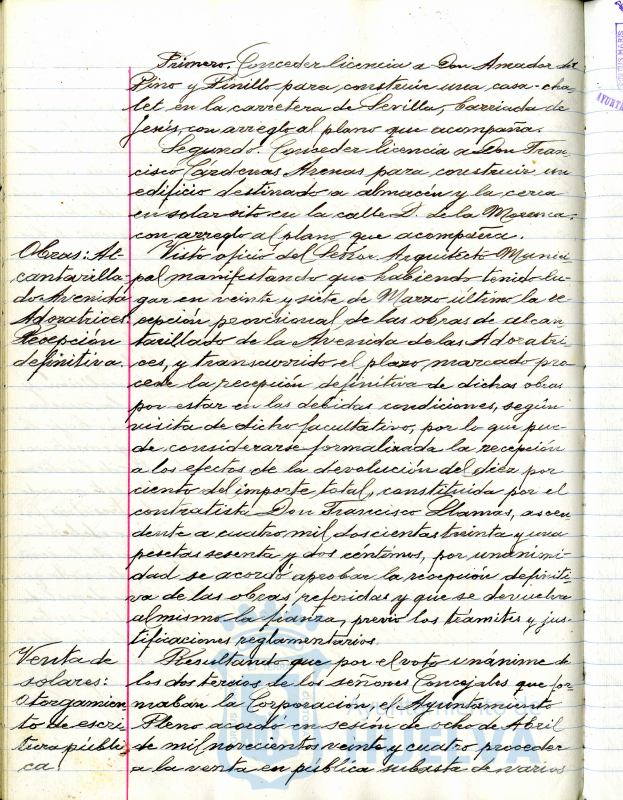 Primero. Conceder licencia a Don Amador del
Pino y Pinillo para construir una casa-cha-
let en la carretera de Sevilla, barriada de
Jesús, con arreglo al plano que acompaña.
Segundo. Conceder licencia a Don Fran-
cisco Cárdenas Arenas para construir un
edificio destinado a almacén y la cerca
en solar sito en la calle D. de la Marenca,
con arreglo al plano que acompaña.
Obras: Al-
cantarilla-
do Avenida
Adoratrices.
Recepción
definitiva.
Visto oficio del Señor Arquitecto Munici-
pal manifestando que habiendo tenido lu-
gar en veinte y siete de Marzo último la re-
cepción provisional de las obras de alcan-
tarillado de la Avenida de las Adoratri-
ces, y transcurrido el plazo marcado pro-
cede la recepción definitiva de dichas obras
por estar en las debidas condiciones, según
visita de dicho facultativo, por lo que pue-
de considerarse formalizada la recepción
a los efectos de la devolución del diez por
ciento del importe total, constituida por el
contratista Don Francisco Llamas, ascen-
dente a cuatro mil doscientas treinta y una
pesetas sesenta y dos centimos, por unanimi-
dad se acordó aprobar la recepción definiti-
va de las obras referidas y que se devuelva
al mismo la fianza, previo los trámites y jus-
tificaciones reglamentarios.
Venta de
solares:
Otorgamien-
to de escri-
tura públi-
ca.
Resultando que por el voto unánime de
los dos tercios de los señores Concejales que for-
maban la Corporación, el Ayuntamiento
Pleno acordó en sesión de ocho de Abril
de mil novecientos veinte y cuatro proceder
a la venta en pública subasta de varios
HUELVA